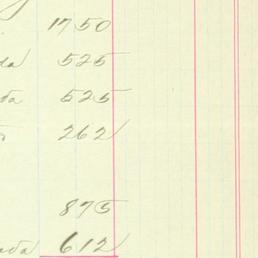 1750
da 525
da 525
262
875
ada 612